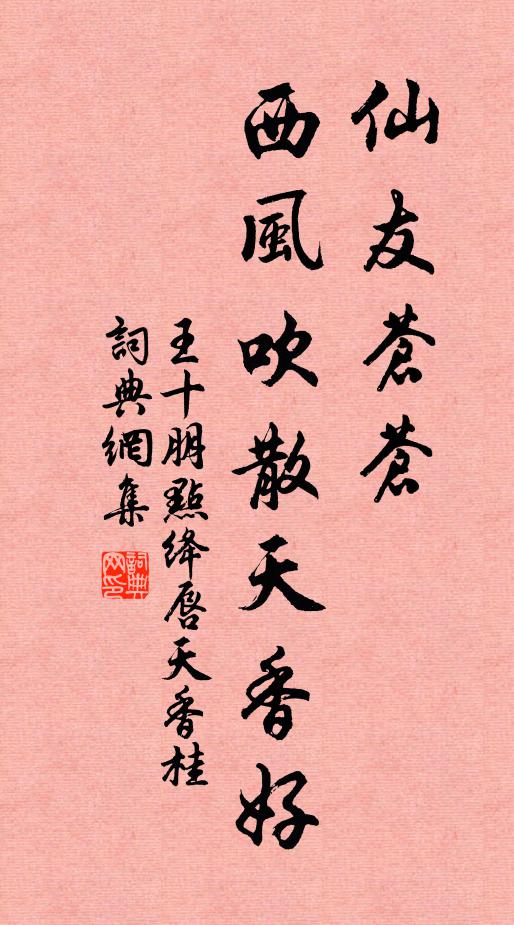 仙友蒼蒼
西風吹散天香好
王十朋點絳唇天香桂
詞典網集
詞典網印